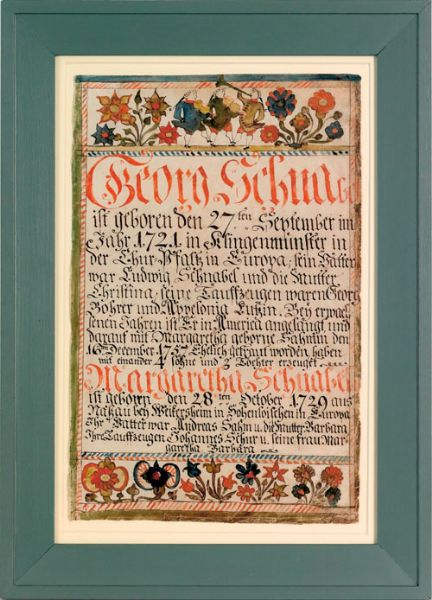 Georg Schnabel
ist geboren den 27ten September im
Jahr 1721 in Klingenmünster in
der Chur Pfaltz in Europa; sein Vatter
war Ludwig Schnabel und die Mutter
Christina; seine Tauffzeugen waren Georg
Bohrer und Appelonia Bey erwac
senen Jahren ist Er in America angelangt und
darauf mit Margaretha geborne Sahmin den
16ten December 1757 Ehelich getraut worden haben
mit einander 4 söhne und 3 Töchter erzeuget
Margaretha Schnabel
ist geboren den 28ten October 1729 aus
bey Weikersheim in in Europa
Ihr Vatter war Andreas Sahm u. die Mutter Barbara
Ihre Tauffzeugen Johannes u. seine frau Mar-
garetha Barbara